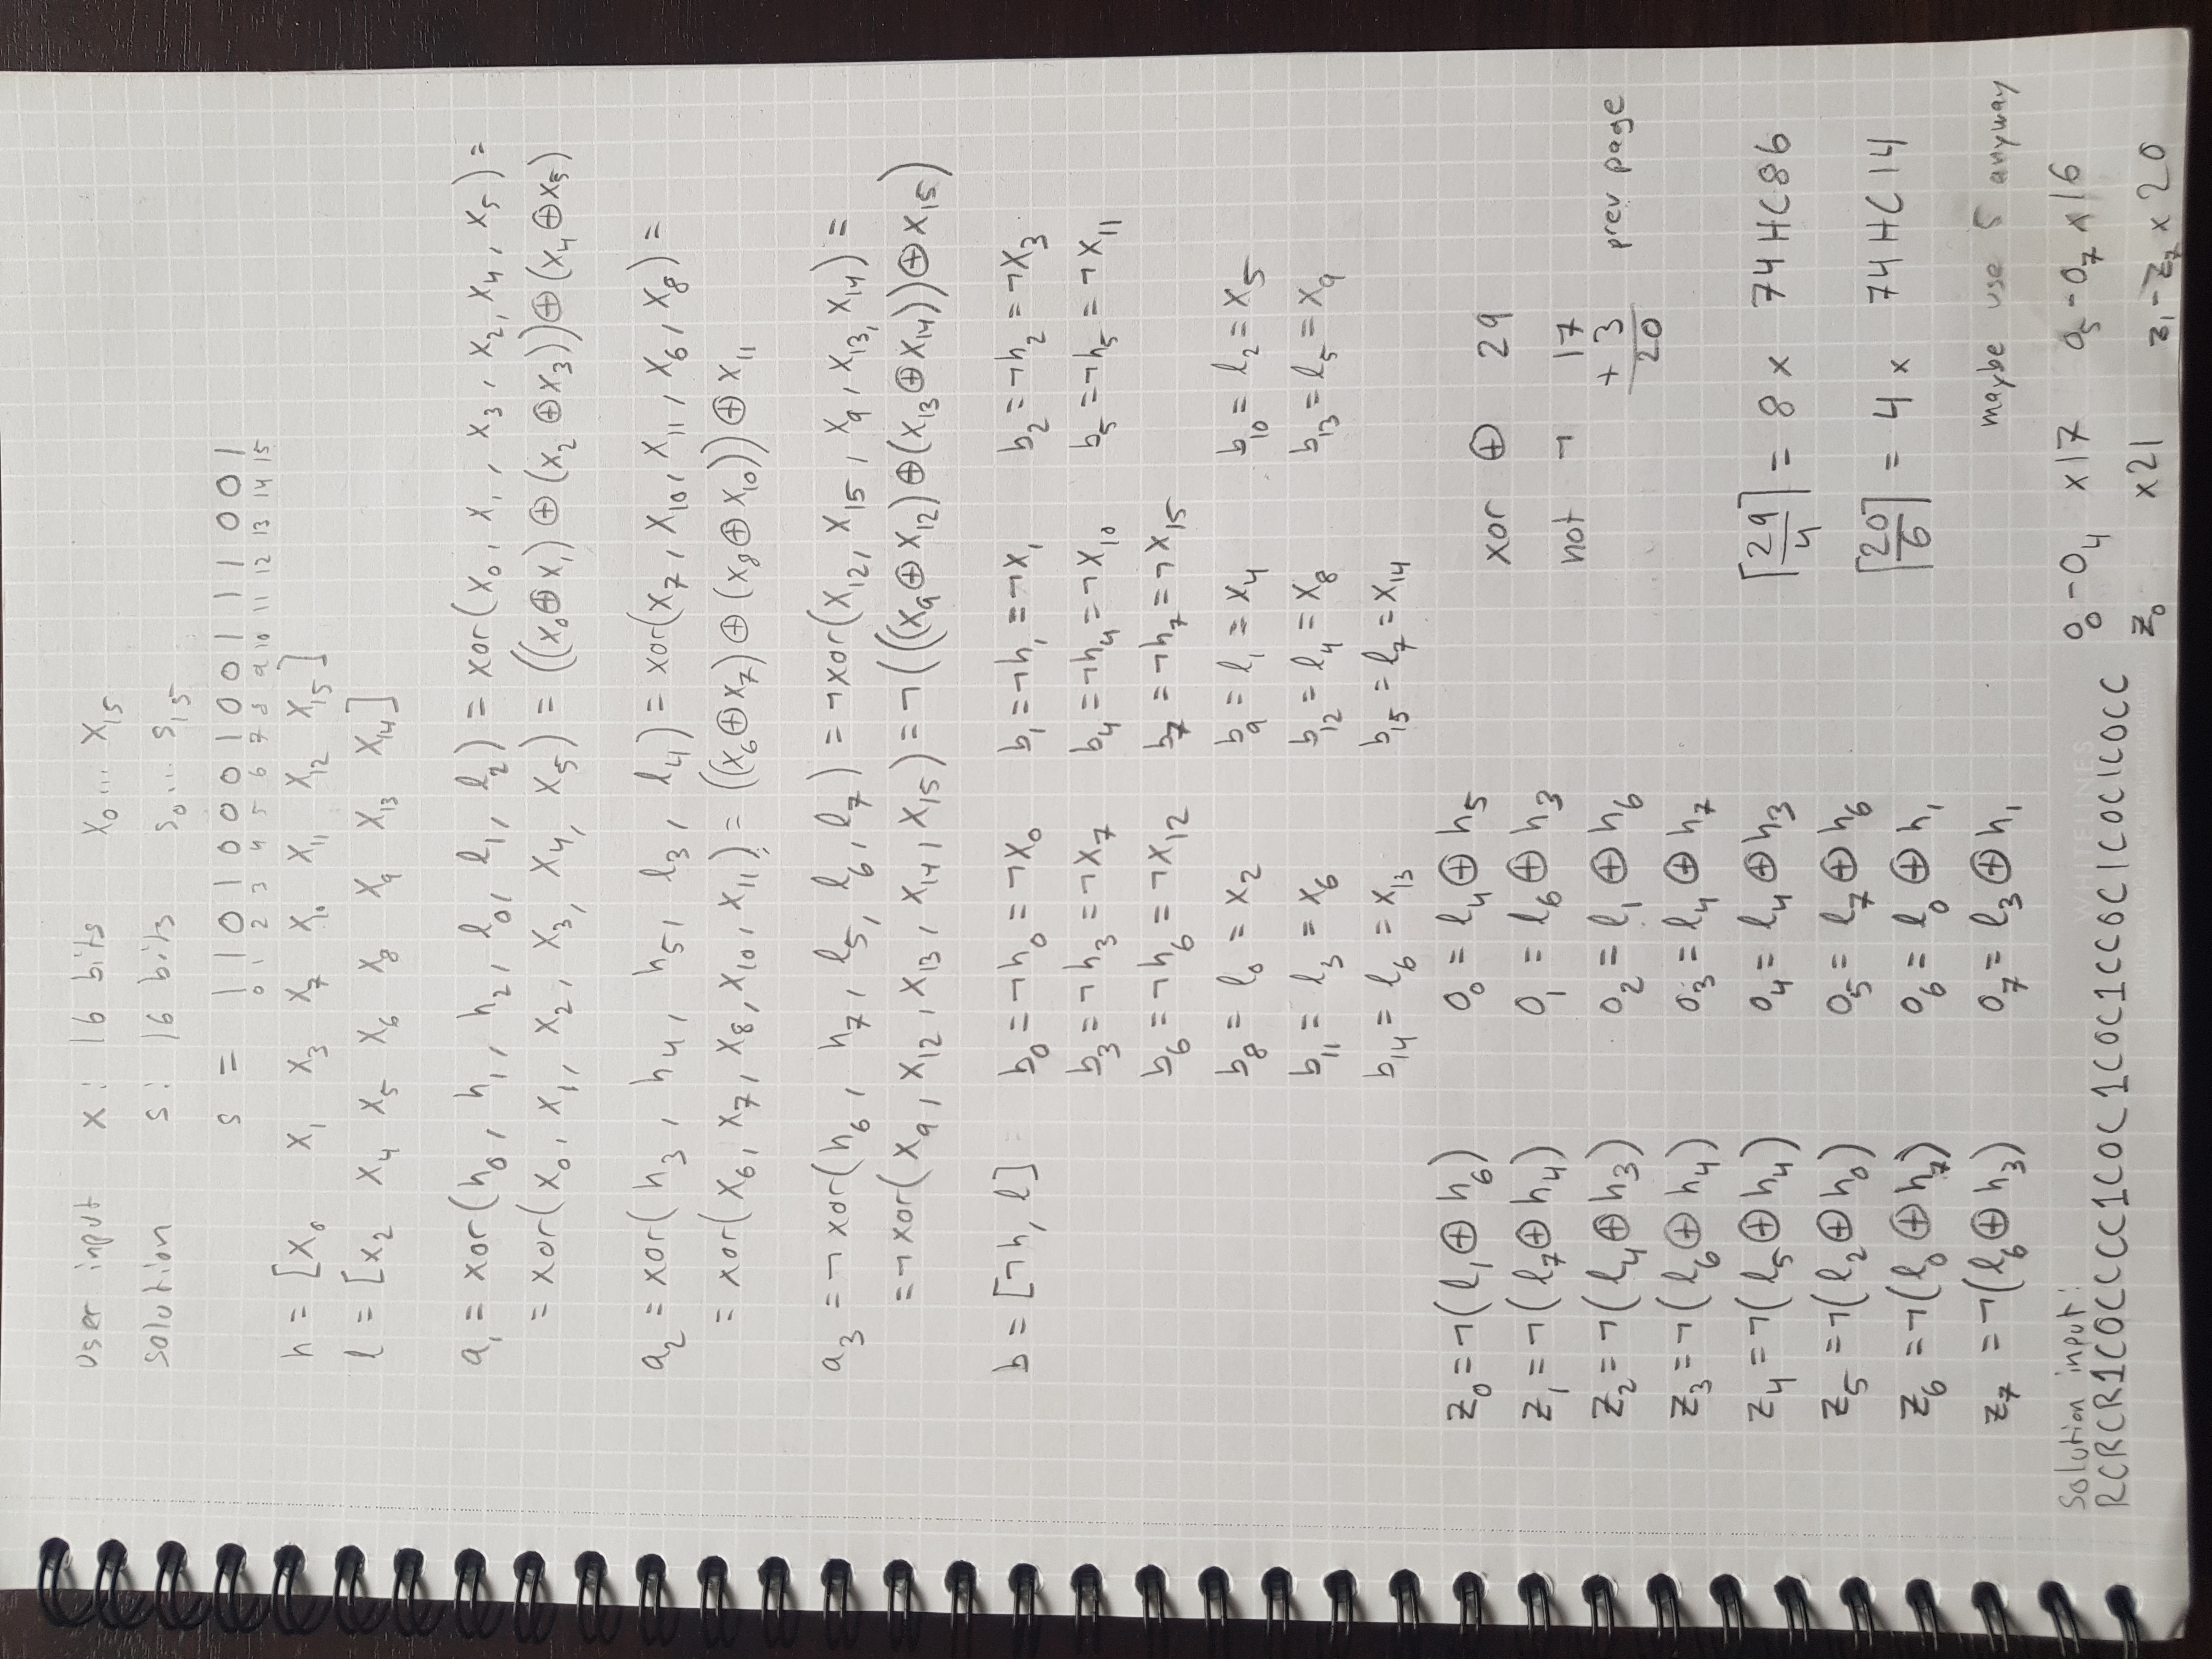 user input x: 16 bits x₀... x₁₅
solution s: 16 bits s₀... s₁₅
s = 1 1 0 1 0 0 0 1 0 0 1 1 1 0 0 1
0 1 2 3 4 5 6 7 8 9 10 11 12 13 14 15
h = [x₀ x₁ x₃ x₇ x₁₀ x₁₁ x₁₂ x₁₅]
l = [x₂ x₄ x₅ x₆ x₈ x₉ x₁₃ x₁₄]
a₁ = xor(h₀, h₁, h₂, l₀, l₁, l₂) = xor(x₀, x₁, x₃, x₂, x₄, x₅) =
= xor(x₀, x₁, x₂, x₃, x₄, x₅) = (((x₀⊕x₁)⊕(x₂⊕x₃))⊕(x₄⊕x₅)
a₂ = xor(h₃, h₄, h₅, l₃, l₄) = xor(x₇, x₁₀, x₁₁, x₆, x₈) =
= xor(x₆, x₇, x₈, x₁₀, x₁₁) = ((x₆⊕x₇)⊕(x₈⊕x₁₀))⊕x₁₁
a₃ = ¬xor(h₆, h₇, l₅, l₆, l₇) = ¬xor(x₁₂, x₁₅, x₉, x₁₃, x₁₄) =
= ¬xor(x₉, x₁₂, x₁₃, x₁₄, x₁₅) = ¬(((x₉⊕x₁₂)⊕(x₁₃⊕x₁₄))⊕x₁₅)
b = [¬h, l] b₀ = ¬h₀ = ¬x₀ b₁ = ¬h₁ = ¬x₁ b₂ = ¬h₂ = ¬x₃
b₃ = ¬h₃ = ¬x₇ b₄ = ¬h₄ = ¬x₁₀ b₅ = ¬h₅ = ¬x₁₁
b₆ = ¬h₆ = ¬x₁₂ b₇ = ¬h₇ = ¬x₁₅
b₈ = l₀ = x₂ b₉ = l₁ = x₄ b₁₀ = l₂ = x₅
b₁₁ = l₃ = x₆ b₁₂ = l₄ = x₈ b₁₃ = l₅ = x₉
b₁₄ = l₆ = x₁₃ b₁₅ = l₇ = x₁₄
z₀ = ¬(l₁⊕h₆) o₀ = l₄⊕h₅ xor ⊕ 29
z₁ = ¬(l₇⊕h₄) o₁ = l₆⊕h₃ not ¬ 17
z₂ = ¬(l₄⊕h₃) o₂ = l₁⊕h₆ + 3 prev page
20
z₃ = ¬(l₆⊕h₄) o₃ = l₄⊕h₇
z₄ = ¬(l₅⊕h₄) o₄ = l₄⊕h₃ ⌈29/4⌉ = 8 x 74HC86
z₅ = ¬(l₂⊕h₀) o₅ = l₇⊕h₆
z₆ = ¬(l₀⊕h₇) o₆ = l₀⊕h₁ ⌈20/6⌉ = 4 x 74HC14
z₇ = ¬(l₆⊕h₃) o₇ = l₃⊕h₁ maybe use 5 anyway
solution input: o₀-o₄ x17 o₅-o₇ x16
RCRCR1C0CCCC1C0C1C0C1CC0C1C0C1C0CC z₀ x21 z₁-z₇ x20
WHITELINES